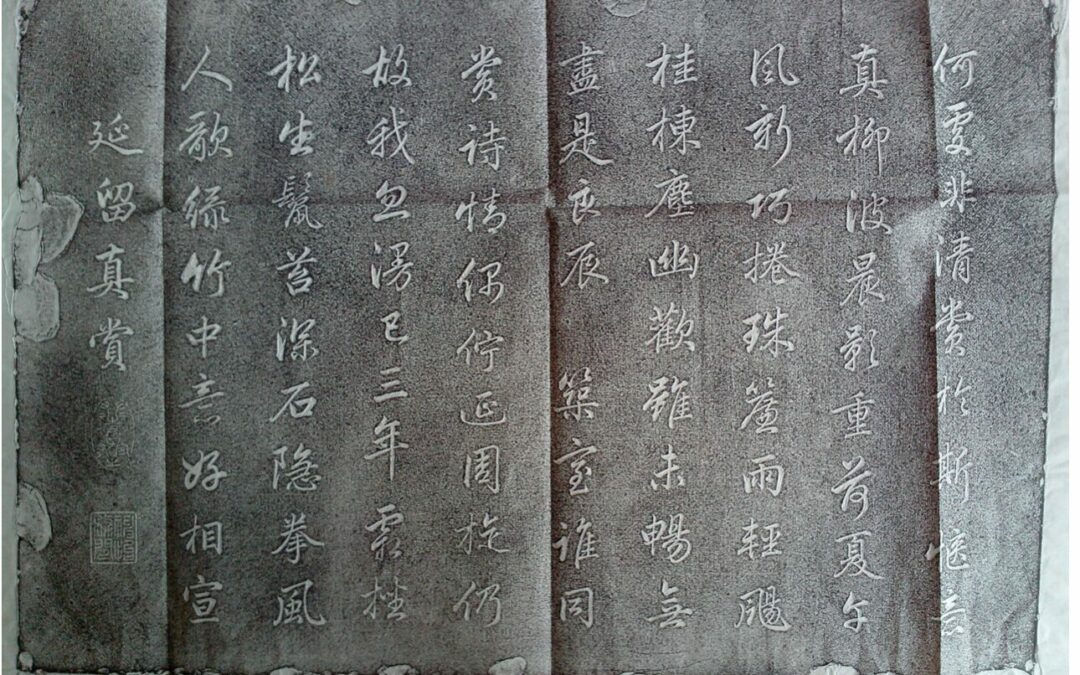 何處非清賞於斯愜意
真柳波晨影重荷夏午
風新巧捲珠簾雨輕颺
桂棟塵幽歡雖未暢無
盡是良辰 築室誰同
賞詩情偶佇延周旋仍
故我忽漫已三年
松生鬣苔深石隱拳風
人歌綠竹中意好相宣
延留真賞